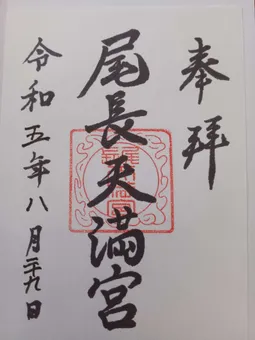 奉拝
尾長天満宮
令和五年八月廿九日